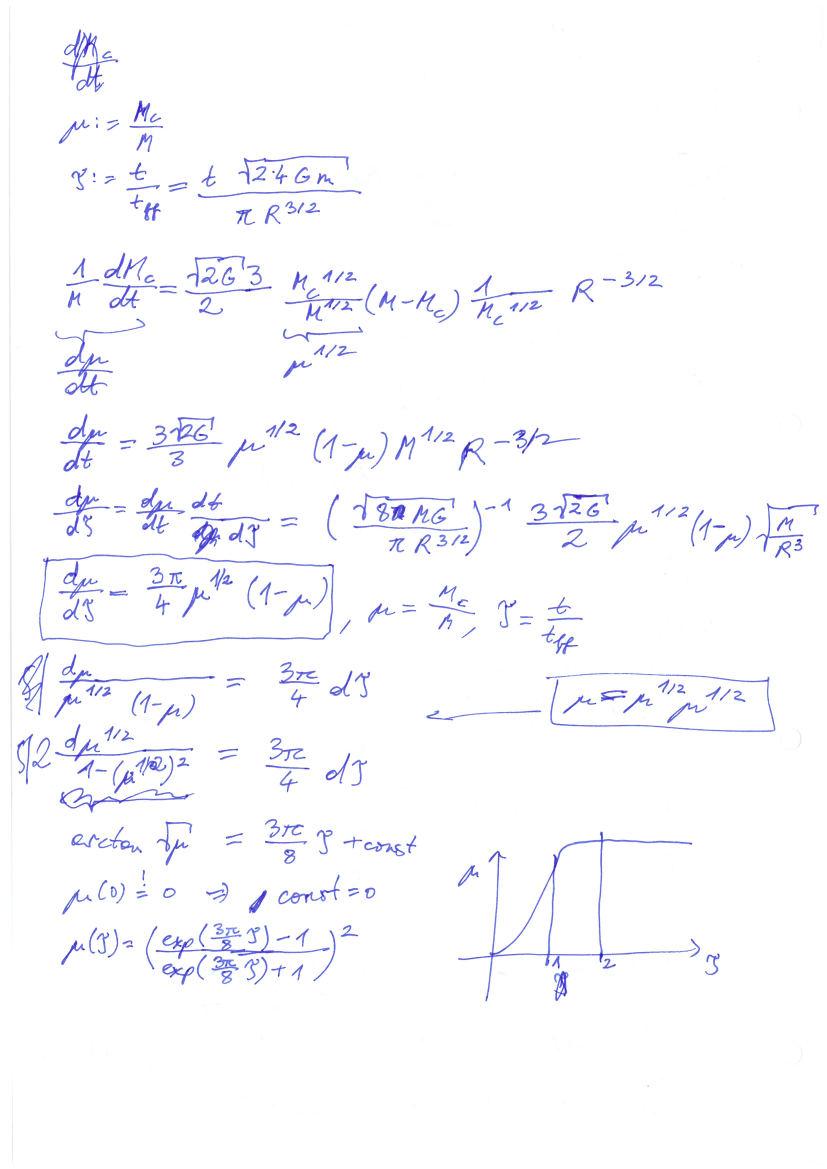 dM_c/dt
μ := M_c/M
ℑ := t/t_ff = t √(2·4Gm) / (π R^3/2)
1/M dM_c/dt = √(2G) 3/2 M_c^1/2/M^1/2 (M-M_c) 1/M_c^1/2 R^-3/2
dμ/dt μ^1/2
dμ/dt = 3√(2G)/3 μ^1/2 (1-μ) M^1/2 R^-3/2
dμ/dℑ = dμ/dt dt/dℑ = (√(8MG)/(π R^3/2))^-1 3√(2G)/2 μ^1/2 (1-μ) √(M/R^3)
dμ/dℑ = 3π/4 μ^1/2 (1-μ), μ = M_c/M, ℑ = t/t_ff
dμ/(μ^1/2 (1-μ)) = 3π/4 dℑ
μ = μ^1/2 μ^1/2
∫ 2 dμ^1/2/(1-(μ^1/2)^2) = 3π/4 dℑ
arctan √μ = 3π/8 ℑ + const
μ(0) =! 0 ⇒ const = 0
μ(ℑ) = ((exp(3π/8 ℑ) - 1)/(exp(3π/8 ℑ) + 1))^2
μ
1 2 ℑ